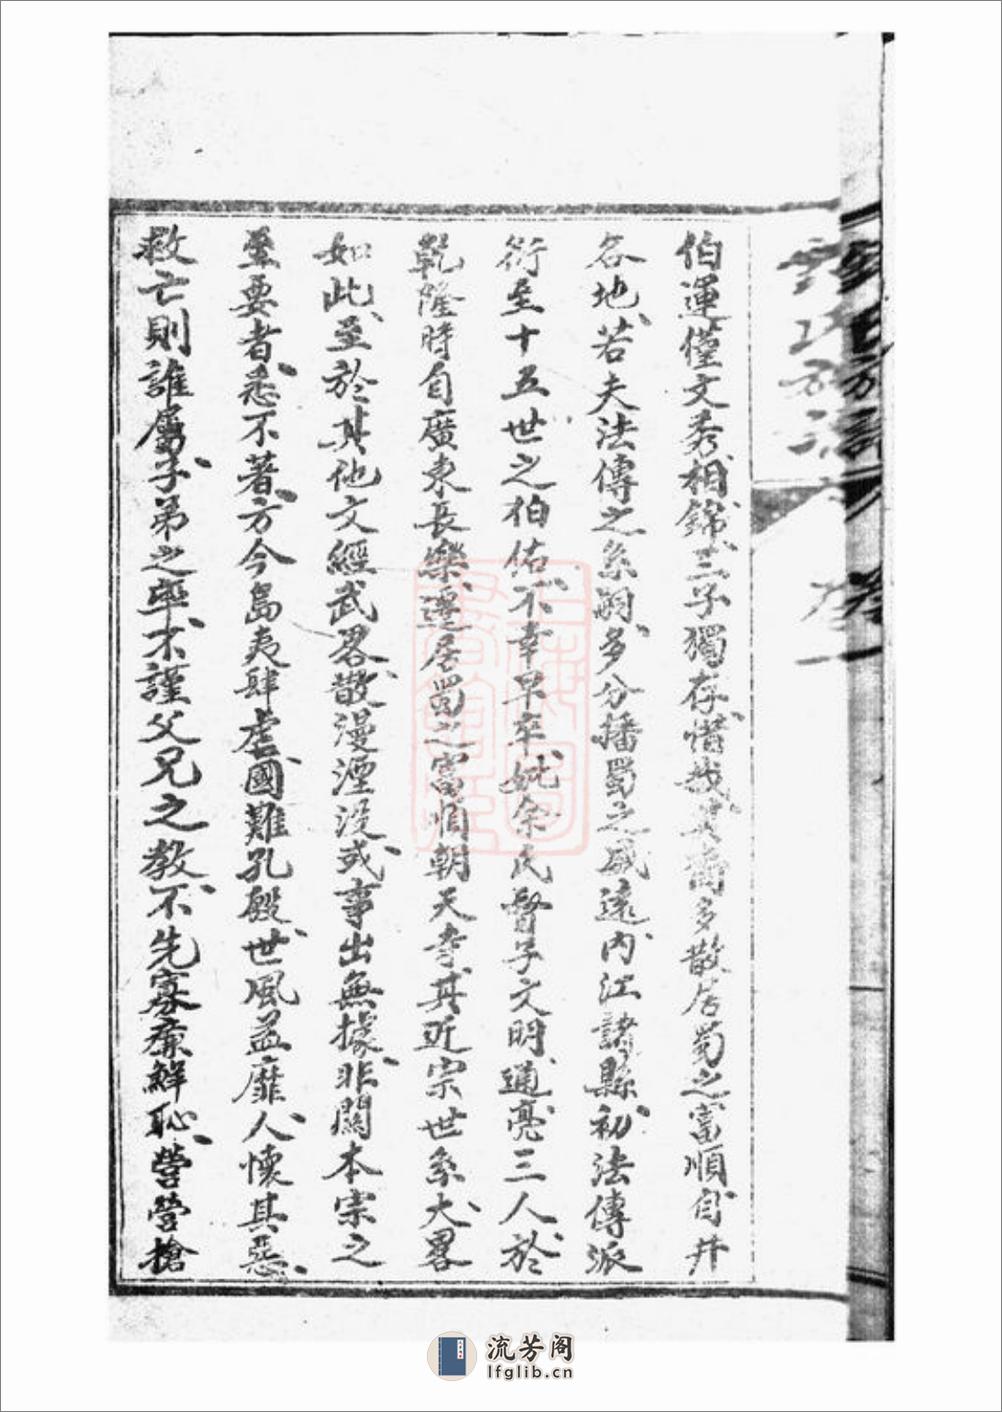 伯運僅文秀相錦三子獨存惜哉其裔多散居蜀之富順自井
各地若夫法傳之系嗣多分播蜀之威遠內江諸縣初法傳派
衍至十五世之伯佑不幸早卒妣余氏督子文明通亮三人於
乾隆時自廣東長樂遷居蜀之富順朝天寺其近宗世系大畧
如此至於其他文經武畧散漫湮没或事出無據非關本宗之
至要者悉不著方今島夷肆虐國難孔殷世風益靡人懷其惡
救亡則誰屬子弟之率不謹父兄之教不先寡廉鮮恥營營搶
流芳阁
lfglib.cn